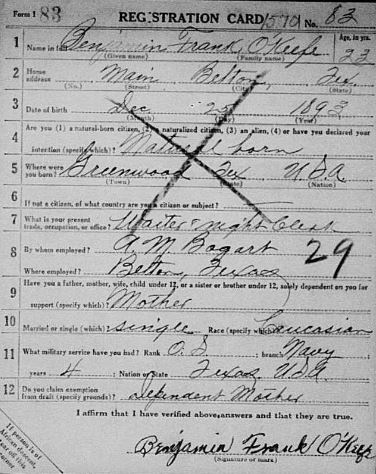 Form 1 83 REGISTRATION CARD 1570 No. 83
1 Name in full Benjamin Frank O'Keefe Age, in yrs. 23
(Given name) (Family name)
2 Home address Main Belton, Tex.
(No.) (Street) (City) (State)
3 Date of birth Dec 25 1893
(Month) (Day) (Year)
4 Are you (1) a natural-born citizen, (2) a naturalized citizen, (3) an alien, (4) or have you declared your
intention (specify which)? Natural born
5 Where were you born? Greenwood Tex U.S.A
(Town) (State) (Nation)
6 If not a citizen, of what country are you a citizen or subject?
7 What is your present trade, occupation, or office? Waiter & night Clerk
8 By whom employed? A. M. Bogart 29
Where employed? Belton, Texas
9 Have you a father, mother, wife, child under 12, or a sister or brother under 12, solely dependent on you for
support (specify which)? Mother
10 Married or single (which)? single Race (specify which)? Caucasian
11 What military service have you had? Rank O. S. branch Navy
years 4 Nation or State Texas U.S.A
12 Do you claim exemption from draft (specify grounds)? Dependent Mother
I affirm that I have verified above answers and that they are true.
If person is of African descent, tear off this
Benjamin Frank O'Keefe
(Signature or mark)